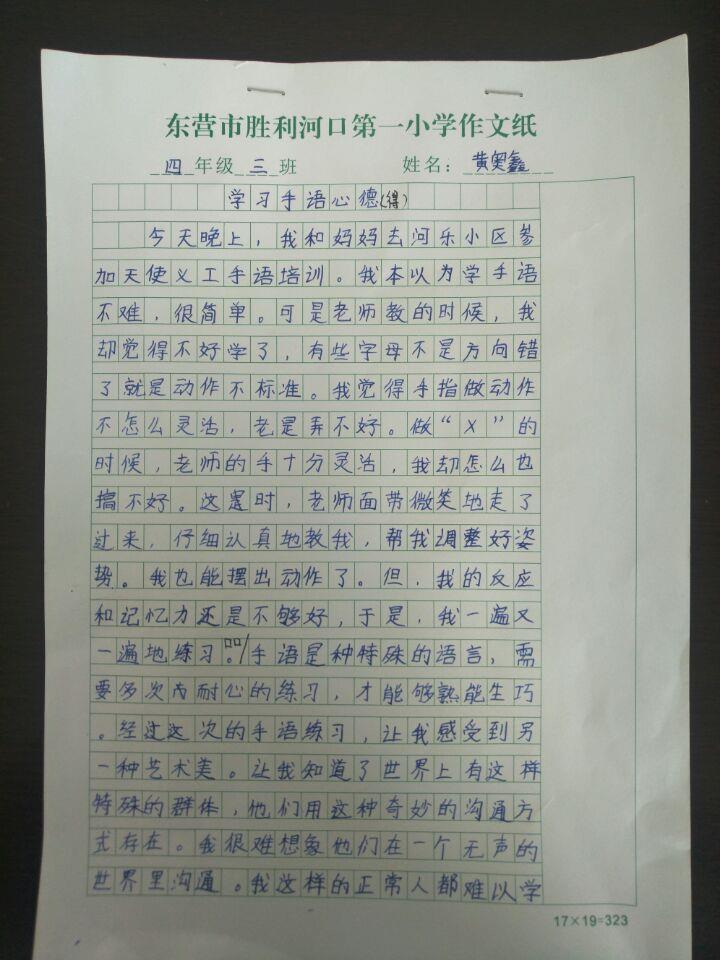 东营市胜利河口第一小学作文纸
四年级三班 姓名：黄奥鑫
学习手语心德(得)
今天晚上，我和妈妈去河乐小区参
加天使义工手语培训。我本以为学手语
不难，很简单。可是老师教的时候，我
却觉得不好学了，有些字母不是方向错
了就是动作不标准。我觉得手指做动作
不怎么灵活，老是弄不好。做“X”的
时候，老师的手十分灵活，我却怎么也
搞不好。这时，老师面带微笑地走了
过来，仔细认真地教我，帮我调整好姿
势。我也能摆出动作了。但，我的反应
和记忆力还是不够好，于是，我一遍又
一遍地练习。手语是种特殊的语言，需
要多次内耐心的练习，才能够熟能生巧
。经过这次的手语练习，让我感受到另
一种艺术美。让我知道了世界上有这样
特殊的群体，他们用这种奇妙的沟通方
式存在。我很难想象他们在一个无声的
世界里沟通。我这样的正常人都难以学
17×19=323